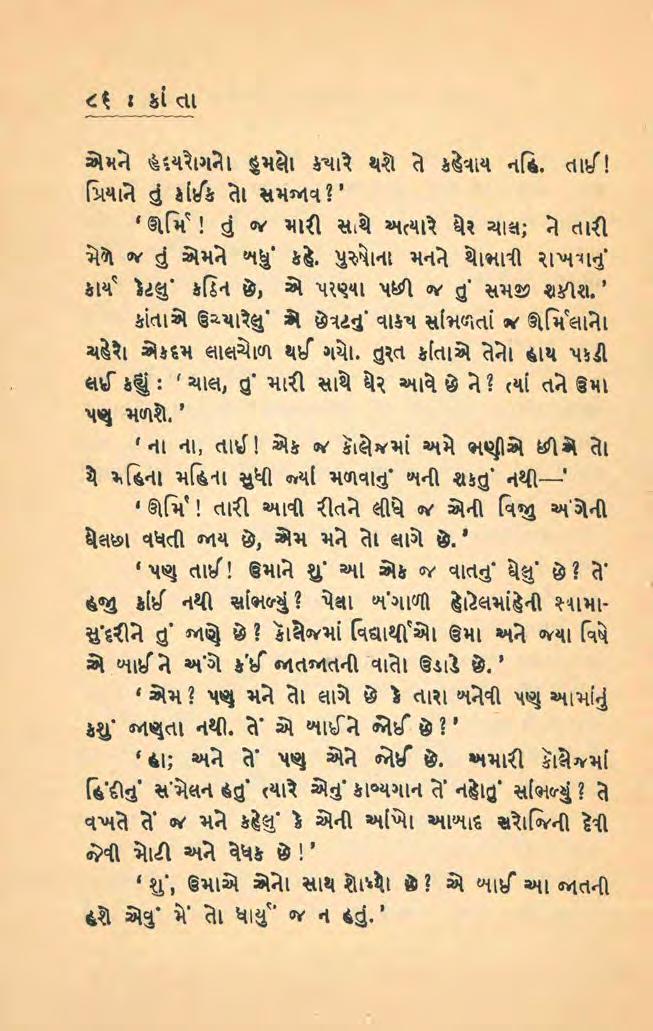 ૮૬ : કાંતા
એમને હૃદયરોગનો હુમલો ક્યારે થશે તે કહેવાય નહિ. તાઈ!
પ્રિયાને તું કાંઈક તો સમજાવ?'
'ઊર્મિ! તું જ મારી સાથે અત્યારે ઘેર ચાલ; ને તારી
મેળે જ તું એમને બધું કહે. પુરુષોના મનને થોભાવી રાખવાનું
કાર્ય કેટલું કઠિન છે, એ પરણ્યા પછી જ તું સમજી શકીશ.'
કાંતાએ ઉચ્ચારેલું એ છેવટનું વાક્ય સાંભળતાં જ ઊર્મિલાનો
ચહેરો એકદમ લાલચોળ થઈ ગયો. તુરત કાંતાએ તેનો હાથ પકડી
લઈ કહ્યું : 'ચાલ, તું મારી સાથે ઘેર આવે છે ને? ત્યાં તને ઉમા
પણ મળશે.'
'ના ના, તાઈ! એક જ કૉલેજમાં અમે ભણીએ છીએ તો
યે મહિના મહિના સુધી જ્યાં મળવાનું બની શકતું નથી—'
'ઊર્મિ! તારી આવી રીતને લીધે જ એની વિજુ અંગેની
ઘેલછા વધતી જાય છે, એમ મને તો લાગે છે.'
'પણ તાઈ! ઉમાને શું આ એક જ વાતનું ઘેલું છે? તેં
હજુ કાંઈ નથી સાંભળ્યું? પેલા બંગાળી હોટેલમાંહેની શ્યામા-
સુંદરીને તું જાણે છે? કૉલેજમાં વિદ્યાર્થીઓ ઉમા અને જયા વિષે
એ બાઈ ને અંગે કંઈ જાતજાતની વાતો ઉડાડે છે.'
'એમ? પણ મને તો લાગે છે કે તારા બનેવી પણ આમાંનું
કશું જાણતા નથી. તેં એ બાઈને જોઈ છે?'
'હા; અને તેં પણ એને જોઈ છે. અમારી કૉલેજમાં
હિંદીનું સંમેલન હતું ત્યારે એનું કાવ્યગાન તેં નહોતું સાંભળ્યું? તે
વખતે તેં જ મને કહેલું કે એની આંખો આબાદ સરોજિની દેવી
જેવી મોટી અને વેધક છે!'
'શું, ઉમાએ એનો સાથ શોધ્યો છે? એ બાઈ આ જાતની
હશે એવું મેં તો ધાર્યું જ ન હતું.'